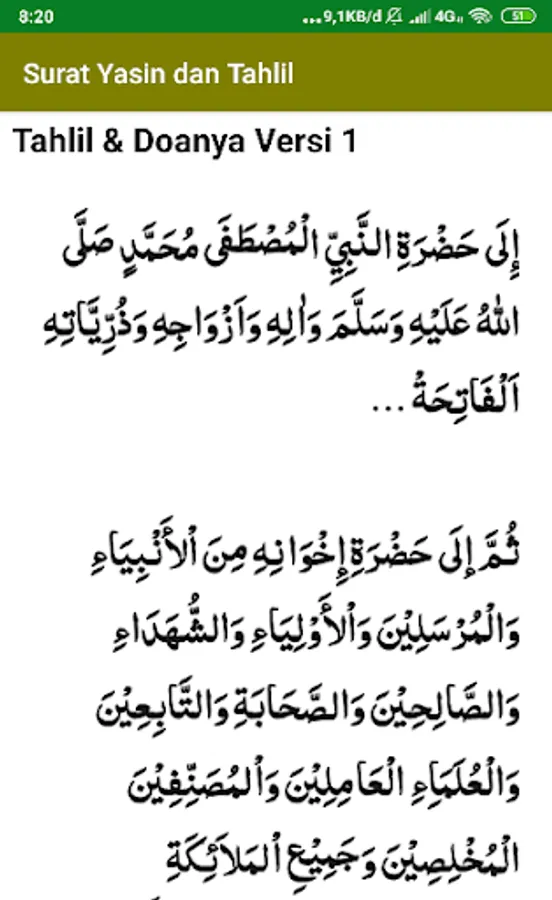 8:20
...9,1KB/d 4G 51
Surat Yasin dan Tahlil
Tahlil & Doanya Versi 1
إِلَى حَضْرَةِ النَّبِيِّ الْمُصْطَفَى مُحَمَّدٍ صَلَّى
اللهُ عَلَيْهِ وَسَلَّمَ وَاٰلِهِ وَاَزْوَاجِهِ وَذُرِّيَّاتِهِ
اَلْفَاتِحَةُ ...
ثُمَّ إِلَى حَضْرَةِ إِخْوَانِهِ مِنَ اْلأَنْبِيَاءِ
وَالْمُرْسَلِيْنَ وَاْلأَوْلِيَاءِ وَالشُّهَدَاءِ
وَالصَّالِحِيْنَ وَالصَّحَابَةِ وَالتَّابِعِيْنَ
وَالْعُلَمَاءِ الْعَامِلِيْنَ وَاْلمُصَنِّفِيْنَ
الْمُخْلِصِيْنَ وَجَمِيْعِ اْلمَلاَئِكَةِ